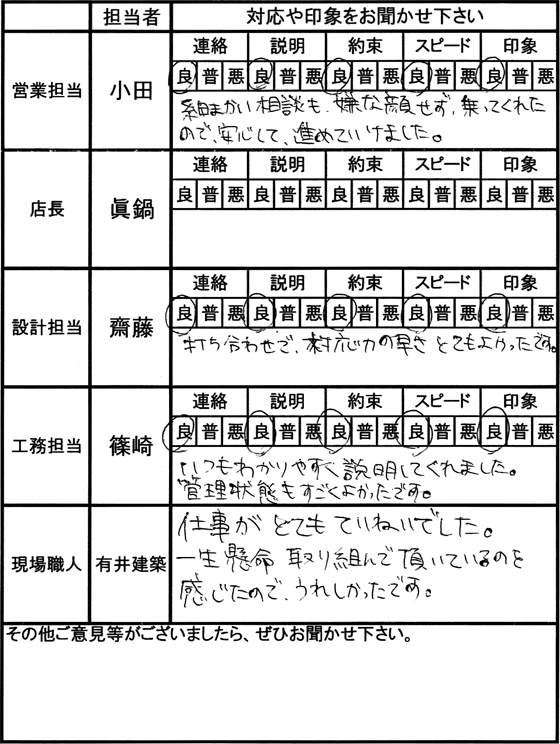 担当者 対応や印象をお聞かせ下さい
営業担当 小田
連絡 説明 約束 スピード 印象
良 普 悪 良 普 悪 良 普 悪 良 普 悪 良 普 悪
細まかい相談も、嫌な顔せず、乗ってくれた
ので、安心して、進めていけました。
店長 眞鍋
連絡 説明 約束 スピード 印象
良 普 悪 良 普 悪 良 普 悪 良 普 悪 良 普 悪
設計担当 齋藤
連絡 説明 約束 スピード 印象
良 普 悪 良 普 悪 良 普 悪 良 普 悪 良 普 悪
打ち合わせで、対応力の早さとてもよかったです。
工務担当 篠崎
連絡 説明 約束 スピード 印象
良 普 悪 良 普 悪 良 普 悪 良 普 悪 良 普 悪
いつもわかりやすく説明してくれました。
管理状態もすごくよかったです。
現場職人 有井建築
仕事がとてもていねいでした。
一生懸命取り組んで頂いているのを
感じたので、うれしかったです。
その他ご意見等がございましたら、ぜひお聞かせ下さい。